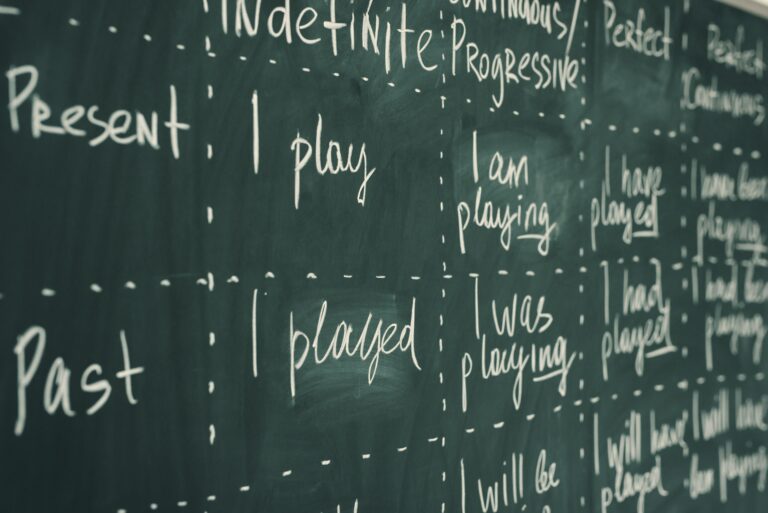 Indefinite
Continuous/
Progressive
Perfect
Perfect
Continuous
Present
I play
I am
playing
I have
played
I have been
playing
Past
I played
I was
playing
I had
played
I had been
playing
I will be
I will have
played
I will have
been playing